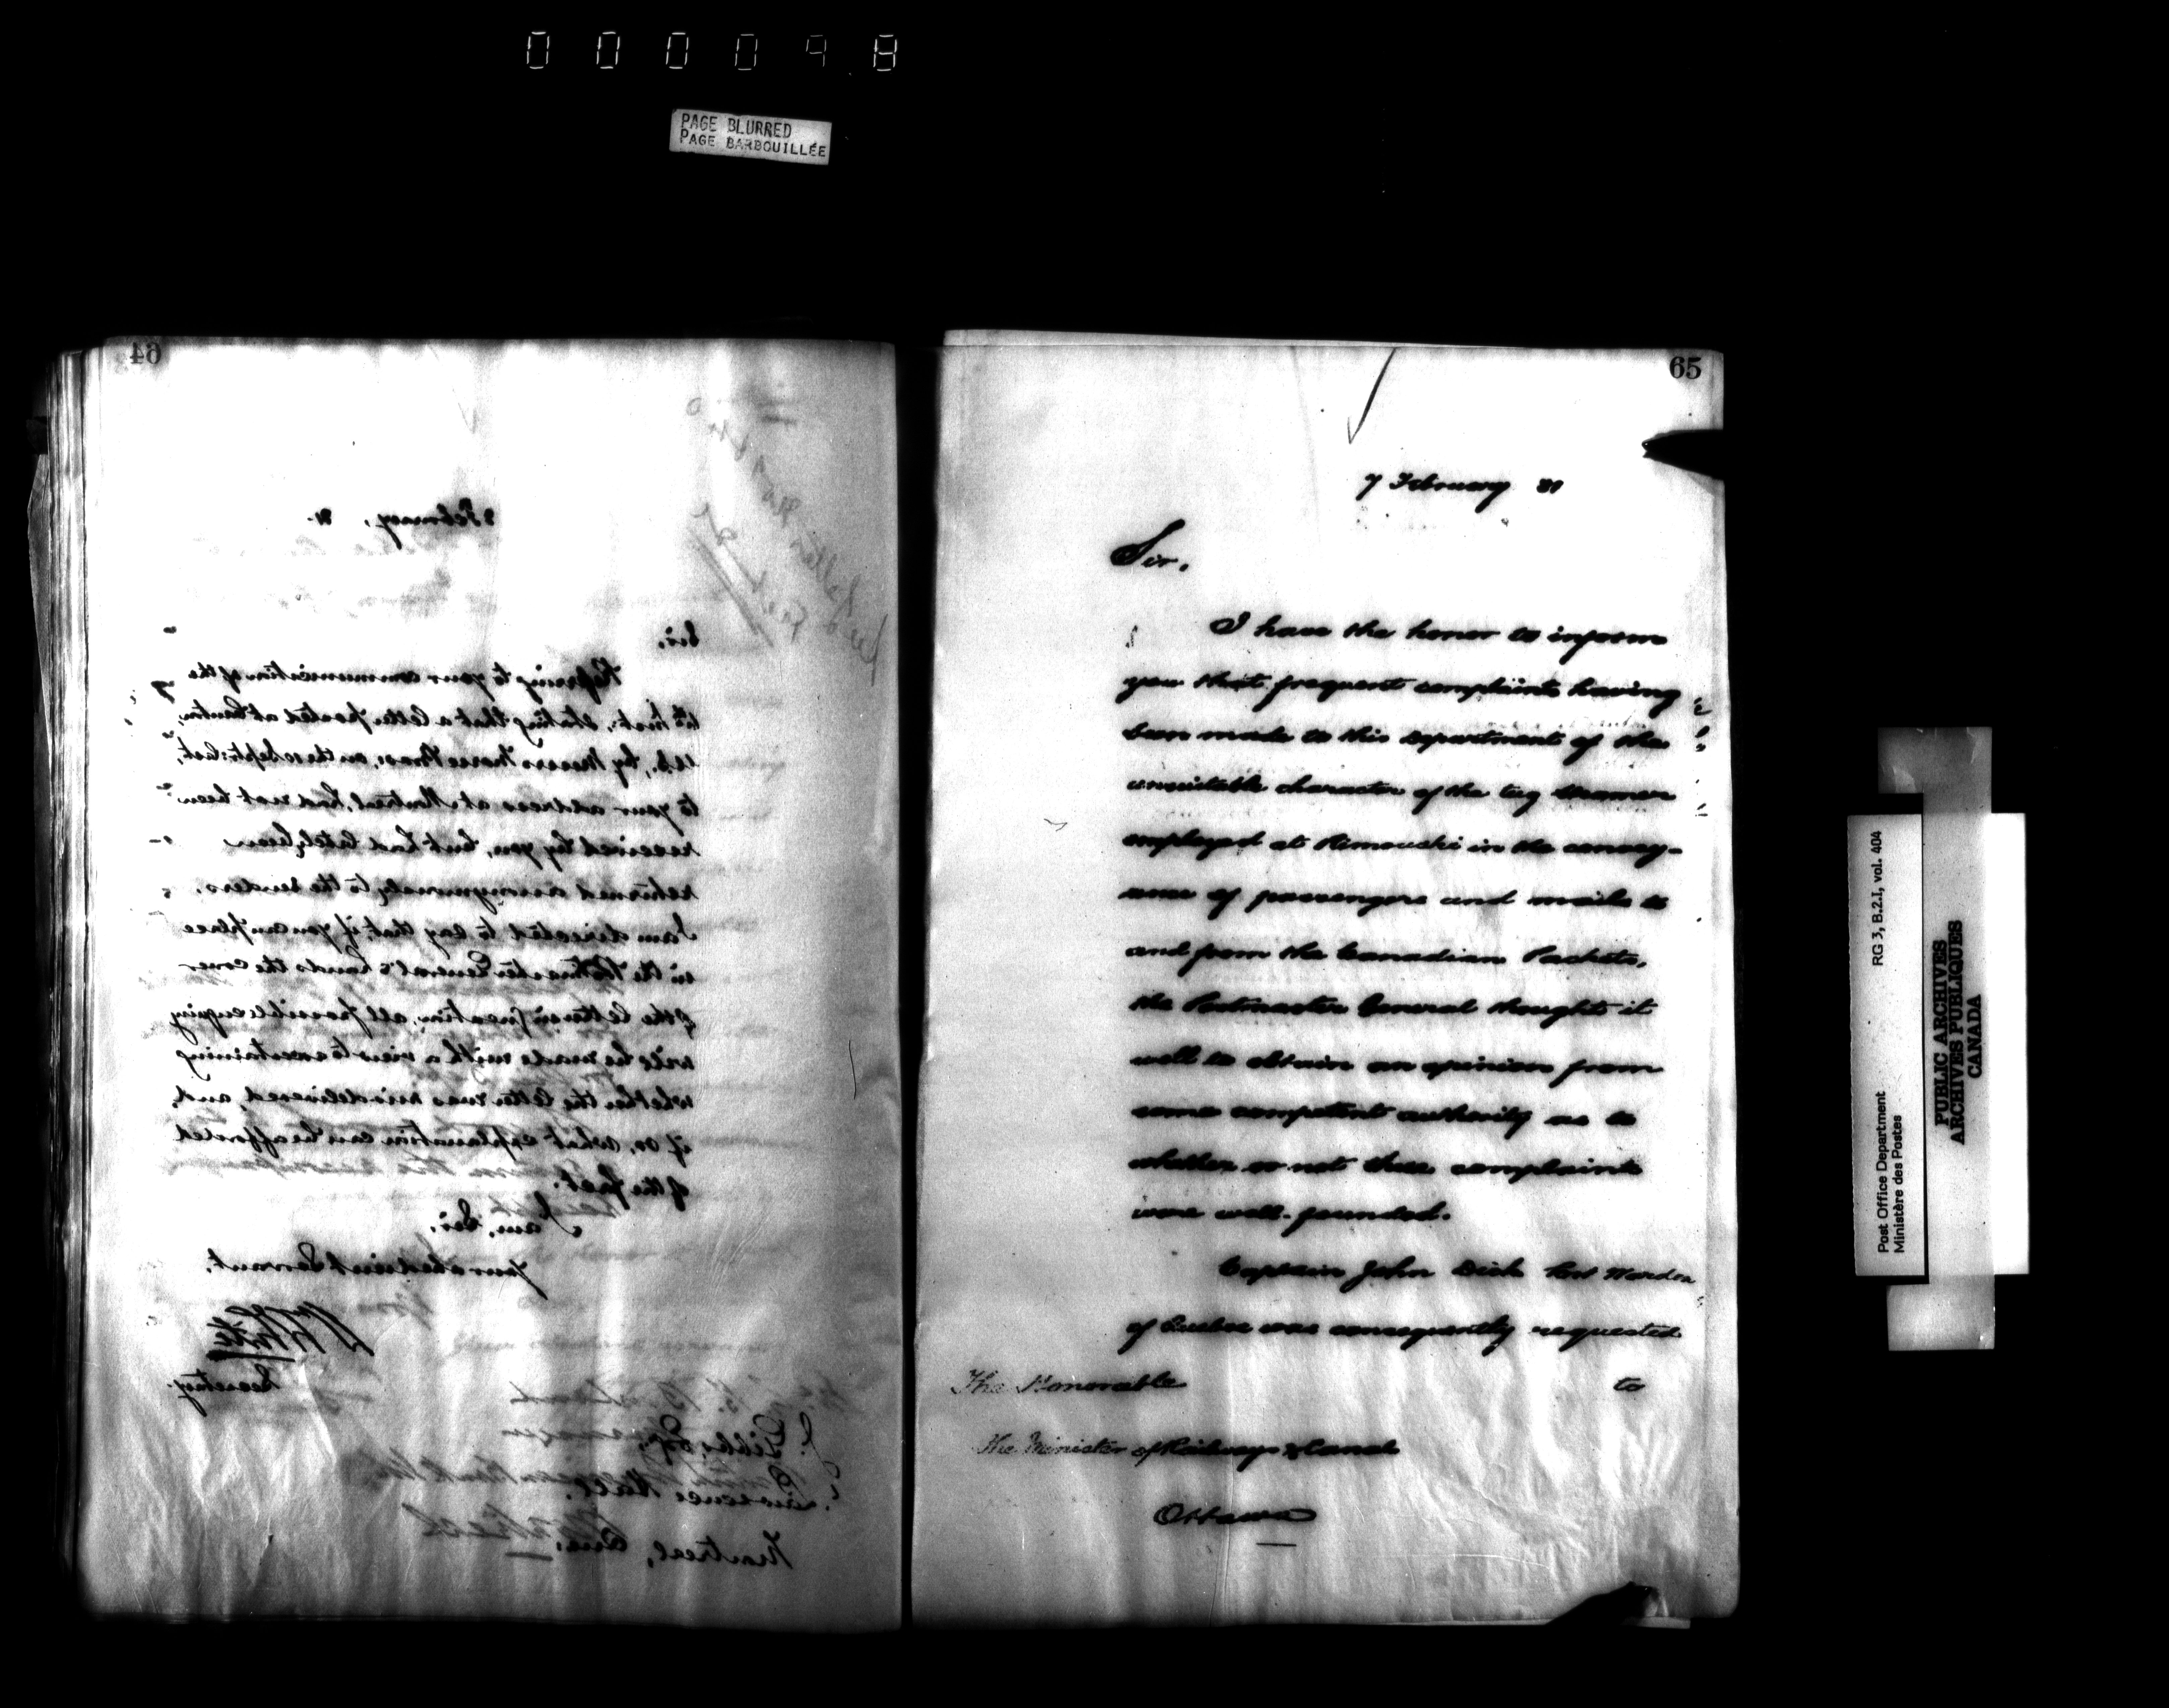 000098
PAGE BLURRED
PAGE BARBOUILLÉE
64
February, 81.
Sir,
Referring to your communication of the
inst., stating that a letter posted at
U.S., by Messrs Morse Bros, on the 10 Septr. last,
to your address at Montreal, had not been
received by you, but had lately been
returned anonymously to the senders,
I am directed to say that, if you can place
in the Postmaster General's hands the cover
of the letter in question, all possible enquiry
will be made with a view to ascertaining
whether the letter was misdelivered, and,
if so, what explanation can be afforded
of the fact.
I am, Sir,
Your obedient Servant,
Secretary.
J. Gibbs, Esq.,
Lawrence Hall,
Montreal, Que.
65
7 February 81
Sir,
I have the honor to inform
you that frequent complaints having
been made to this department of the
unsuitable character of the tug steamer
employed at Rimouski in the convey-
ance of passengers and mails to
and from the Canadian Packets,
the Postmaster General thought it
well to obtain an opinion from
some competent authority as to
whether or not these complaints
were well-founded.
Captain John Dick Port Warden
of Quebec was consequently requested
to
The Honorable
The Minister of Railways & Canals
Ottawa
Post Office Department RG 3, B.2.I, vol. 404
Ministère des Postes
PUBLIC ARCHIVES
ARCHIVES PUBLIQUES
CANADA